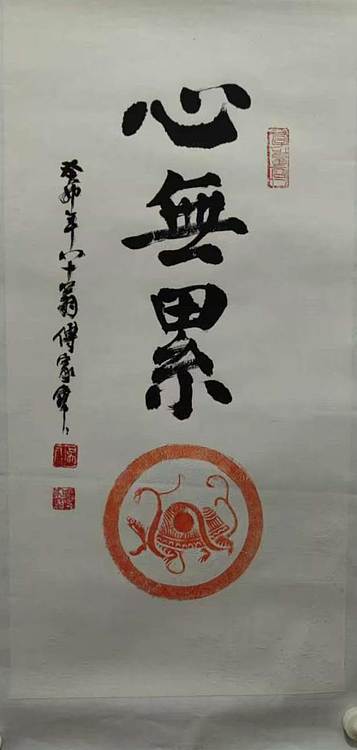 心無累
癸卯年八十翁傅家寶